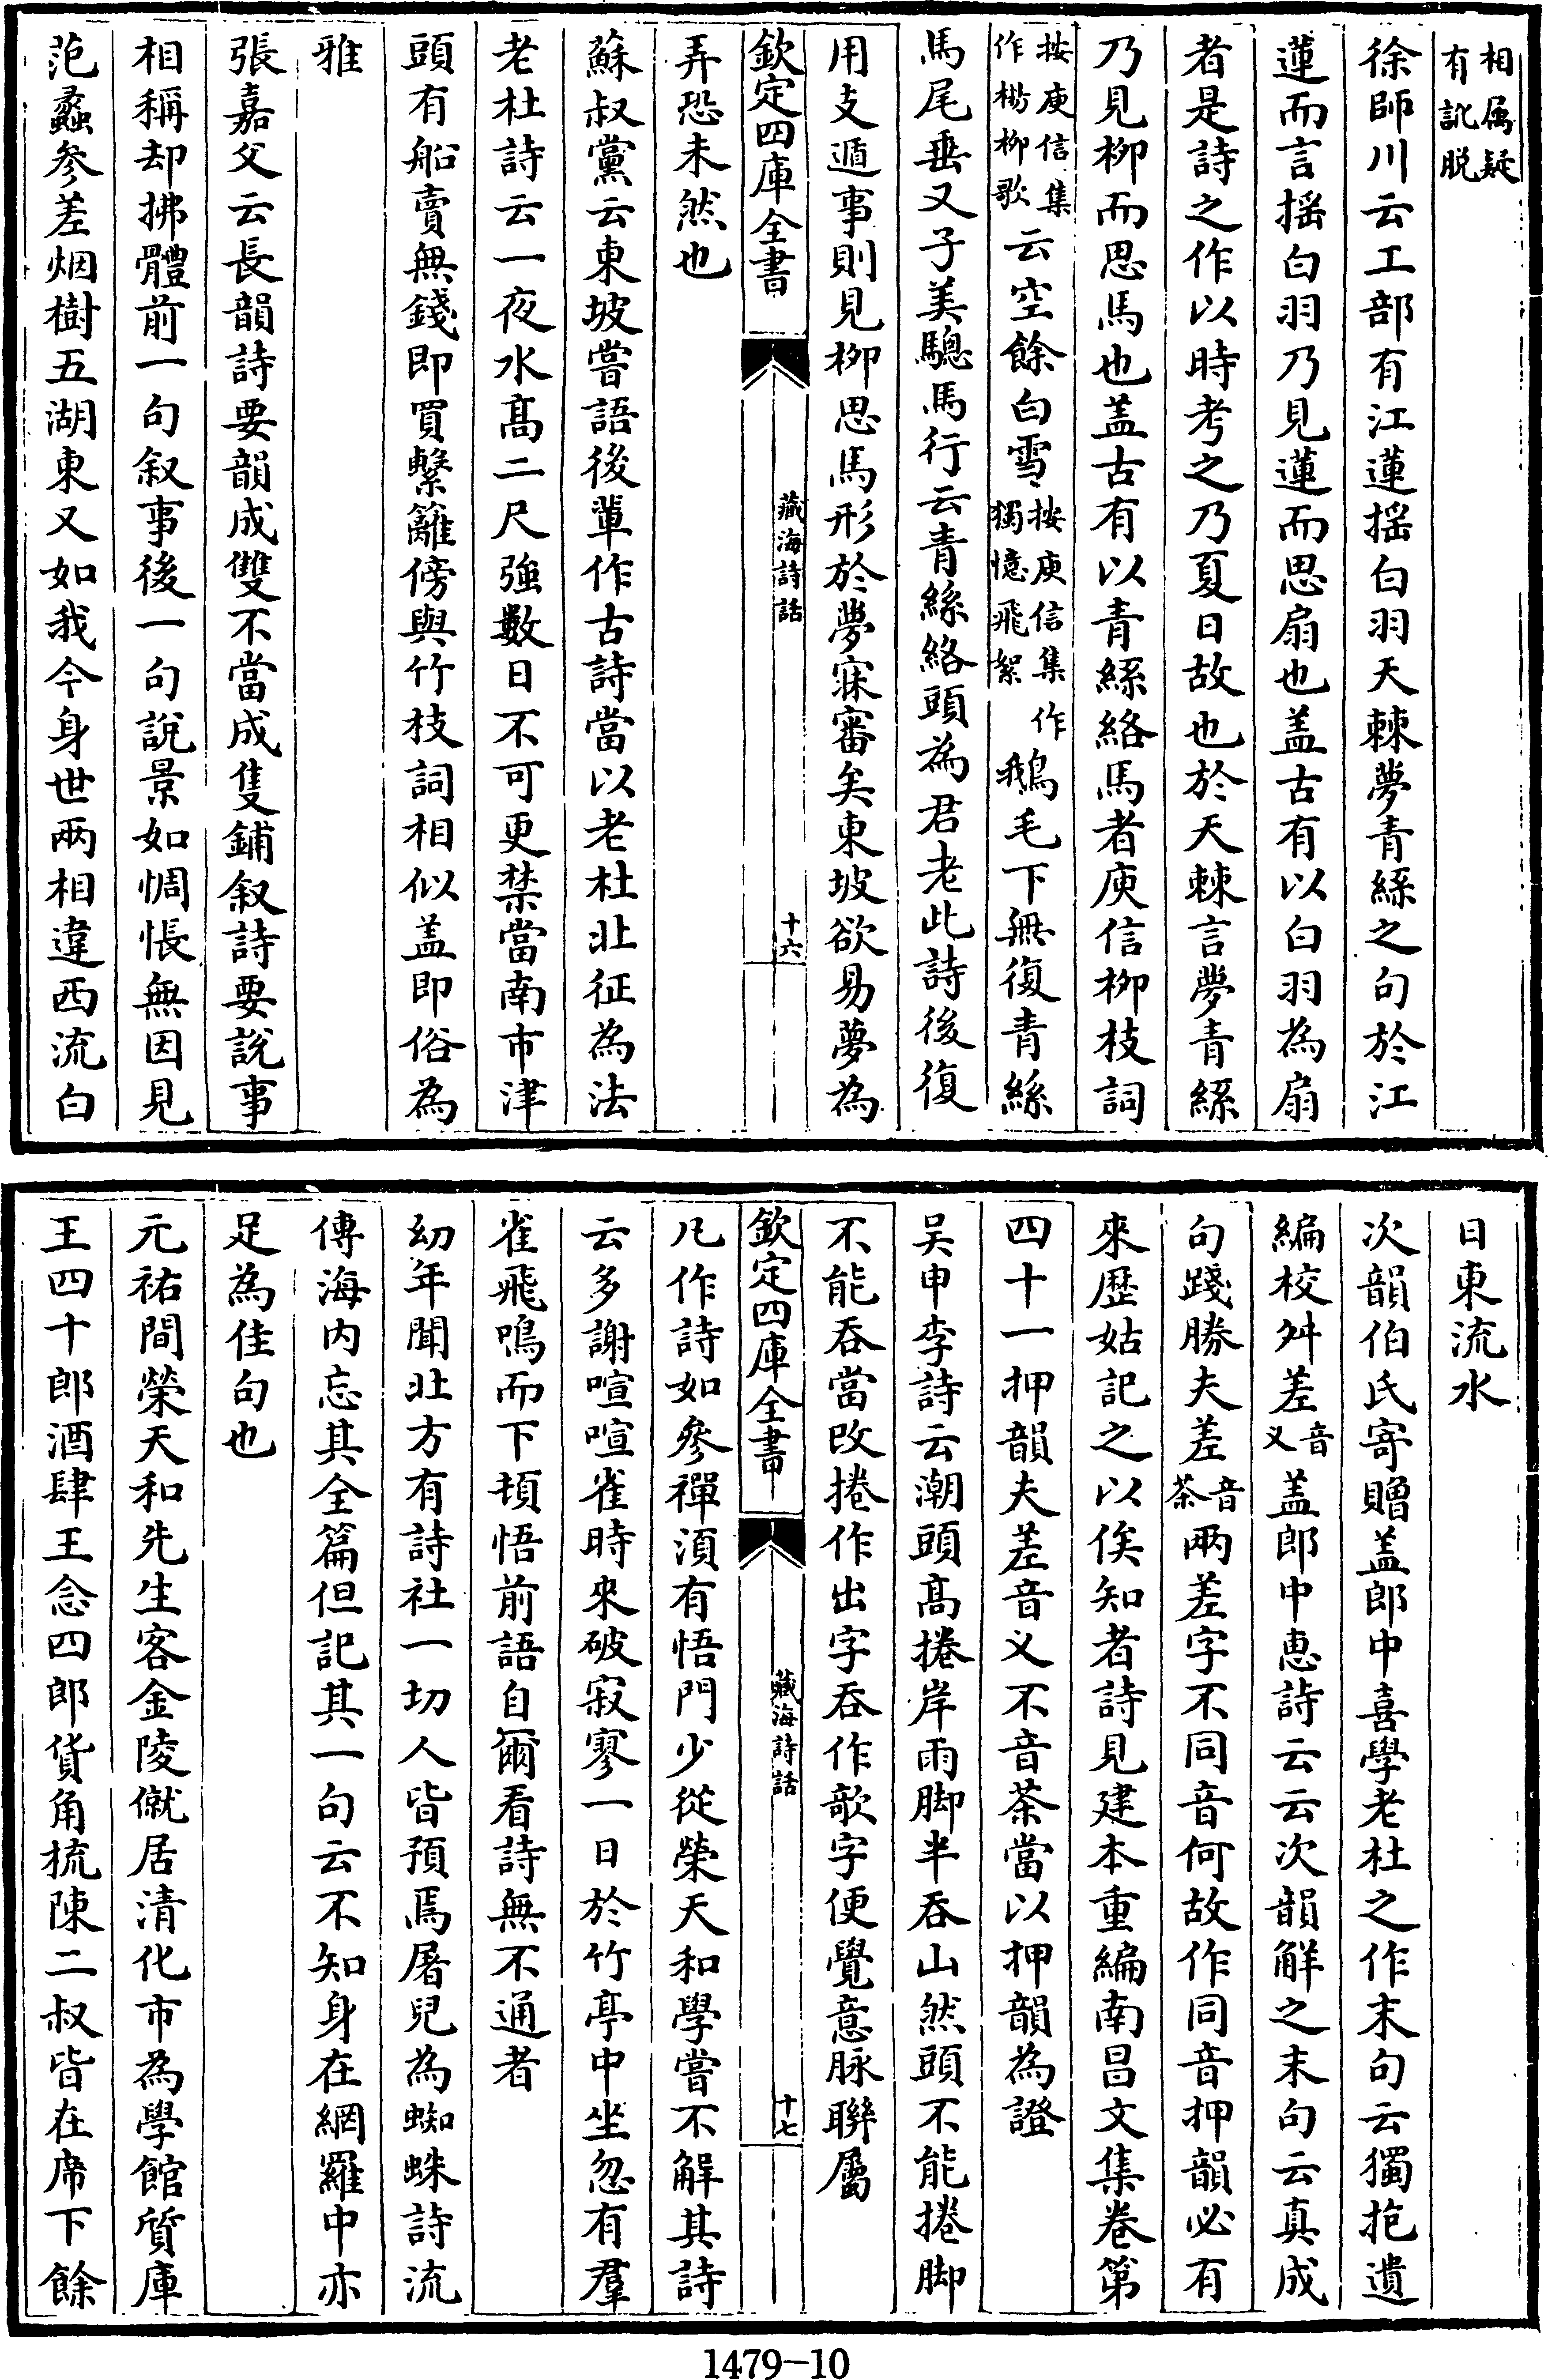 相属疑
有訛脱
徐師川云工部有江蓮揺白羽天棘夢青絲之句於江
蓮而言揺白羽乃見蓮而思扇也盖古有以白羽為扇
者是詩之作以時考之乃夏日故也於天棘言夢青絲
乃見柳而思馬也盖古有以青絲絡馬者庾信柳枝詞
按庾信集
作楊柳歌
云空餘白雪
按庾信集作
獨憶飛絮
鵝毛下無復青絲
馬尾垂又子美驄馬行云青絲絡頭為君老此詩後復
用支遁事則見柳思馬形於夢寐審矣東坡欲易夢為
欽定四庫全書
藏海詩話
十六
弄恐未然也
蘇叔黨云東坡嘗語後輩作古詩當以老杜北征為法
老杜詩云一夜水髙二尺強數日不可更禁當南市津
頭有船賣無錢即買繫籬傍與竹枝詞相似盖即俗為
雅
張嘉父云長韻詩要韻成雙不當成隻鋪叙詩要說事
相稱却拂體前一句叙事後一句說景如惆悵無因見
范蠡參差烟樹五湖東又如我今身世兩相違西流白
日東流水
次韻伯氏寄贈盖郎中喜學老杜之作末句云獨抱遺
編校舛差
音
乂
盖郎中惠詩云云次韻解之末句云真成
句踐勝夫差
音
茶
兩差字不同音何故作同音押韻必有
來歴姑記之以俟知者詩見建本重編南昌文集卷第
四十一押韻夫差音乂不音茶當以押韻為證
吴申李詩云潮頭髙捲岸雨脚半吞山然頭不能捲脚
不能吞當改捲作出字吞作歕字便覺意脉聯屬
欽定四庫全書
藏海詩話
十七
凡作詩如參禪湏有悟門少從榮天和學嘗不解其詩
云多謝喧喧雀時來破寂寥一日於竹亭中坐忽有羣
雀飛鳴而下頓悟前語自爾看詩無不通者
幼年聞北方有詩社一切人皆預焉屠兒為蜘蛛詩流
傳海内忘其全篇但記其一句云不知身在網羅中亦
足為佳句也
元祐間榮天和先生客金陵僦居清化市為學館質庫
王四十郎酒肆王念四郎貨角梳陳二叔皆在席下餘
1479-10